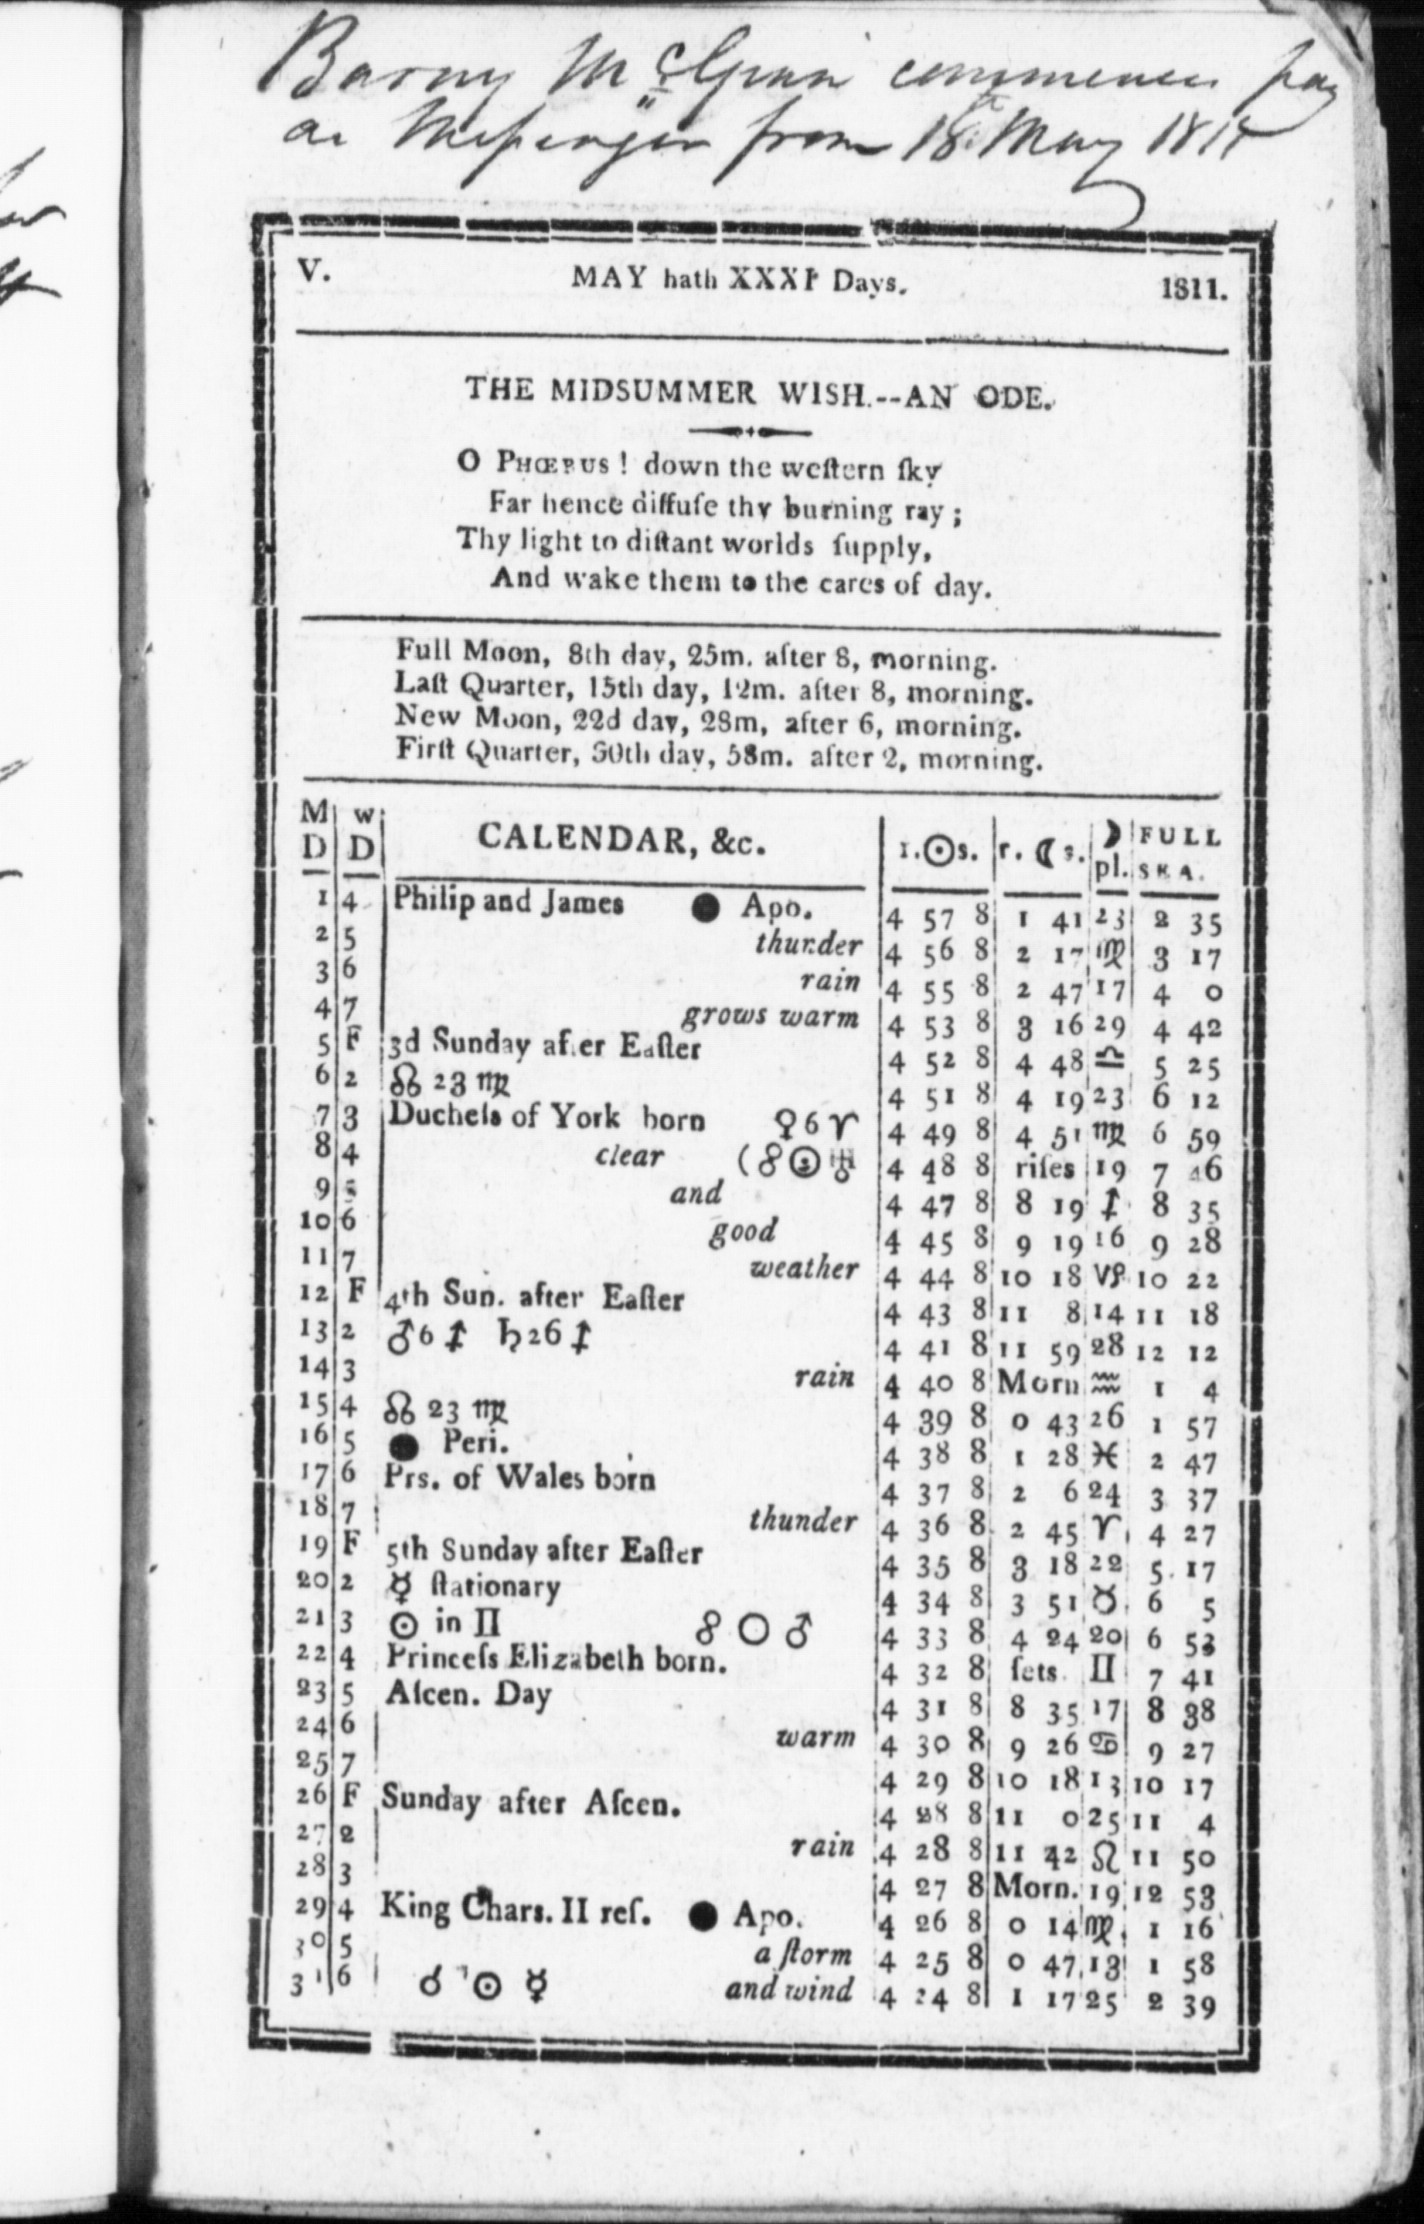 Barny McGinn commences pay
as Meſsenger from 18th May 1811
V. MAY hath XXXI Days. 1811.
THE MIDSUMMER WISH.--AN ODE.
O PHŒBUS! down the weſtern ſky
Far hence diffuſe thy burning ray;
Thy light to diſtant worlds ſupply,
And wake them to the cares of day.
Full Moon, 8th day, 25m. after 8, morning.
Laſt Quarter, 15th day, 12m. after 8, morning.
New Moon, 22d day, 28m, after 6, morning.
Firſt Quarter, 30th day, 58m. after 2, morning.
M w ☽ FULL
D D CALENDAR, &c. r.☉s. r. ☾ s. pl. SEA.
1 4 Philip and James ● Apo. 4 57 8 1 41 23 2 35
2 5 thunder 4 56 8 2 17 ♍ 3 17
3 6 rain 4 55 8 2 47 17 4 0
4 7 grows warm 4 53 8 3 16 29 4 42
5 F 3d Sunday after Eaſter 4 52 8 4 48 ♎ 5 25
6 2 ☊ 23 ♍ 4 51 8 4 19 23 6 12
7 3 Ducheſs of York born ♀ 6 ♈ 4 49 8 4 51 ♏ 6 59
8 4 clear (☍ ☉ ♅ 4 48 8 riſes 19 7 46
9 5 and 4 47 8 8 19 ♐ 8 35
10 6 good 4 45 8 9 19 16 9 28
11 7 weather 4 44 8 10 18 ♑ 10 22
12 F 4th Sun. after Eaſter 4 43 8 11 8 14 11 18
13 2 ♂ 6 ♐ ♄ 26 ♐ 4 41 8 11 59 28 12 12
14 3 rain 4 40 8 Morn ♒ 1 4
15 4 ☊ 23 ♍ 4 39 8 0 43 26 1 57
16 5 ● Peri. 4 38 8 1 28 ♓ 2 47
17 6 Prs. of Wales born 4 37 8 2 6 24 3 37
18 7 thunder 4 36 8 2 45 ♈ 4 27
19 F 5th Sunday after Eaſter 4 35 8 3 18 22 5 17
20 2 ☿ ſtationary 4 34 8 3 51 ♉ 6 5
21 3 ☉ in ♊ ☍ ☉ ♂ 4 33 8 4 24 20 6 53
22 4 Princeſs Elizabeth born. 4 32 8 ſets ♊ 7 41
23 5 Aſcen. Day 4 31 8 8 35 17 8 38
24 6 warm 4 30 8 9 26 ♋ 9 27
25 7 4 29 8 10 18 13 10 17
26 F Sunday after Aſcen. 4 28 8 11 0 25 11 4
27 2 rain 4 28 8 11 42 ♌ 11 50
28 3 4 27 8 Morn. 19 12 53
29 4 King Chars. II reſ. ● Apo. 4 26 8 0 14 ♍ 1 16
30 5 a ſtorm 4 25 8 0 47 13 1 58
31 6 ☌ ☉ ☿ and wind 4 24 8 1 17 25 2 39